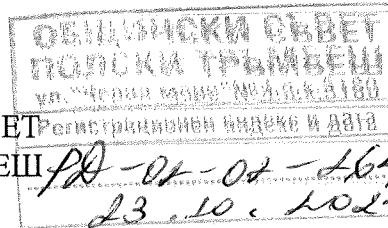 ОБЩИНСКИ СЪВЕТ
ПОЛСКИ ТРЪМБЕШ
ул."Черно море" №4, п.к. 5180
ЕТ Регистрационен индекс и дата
ЕШ РД-01-07-16
23.10.202